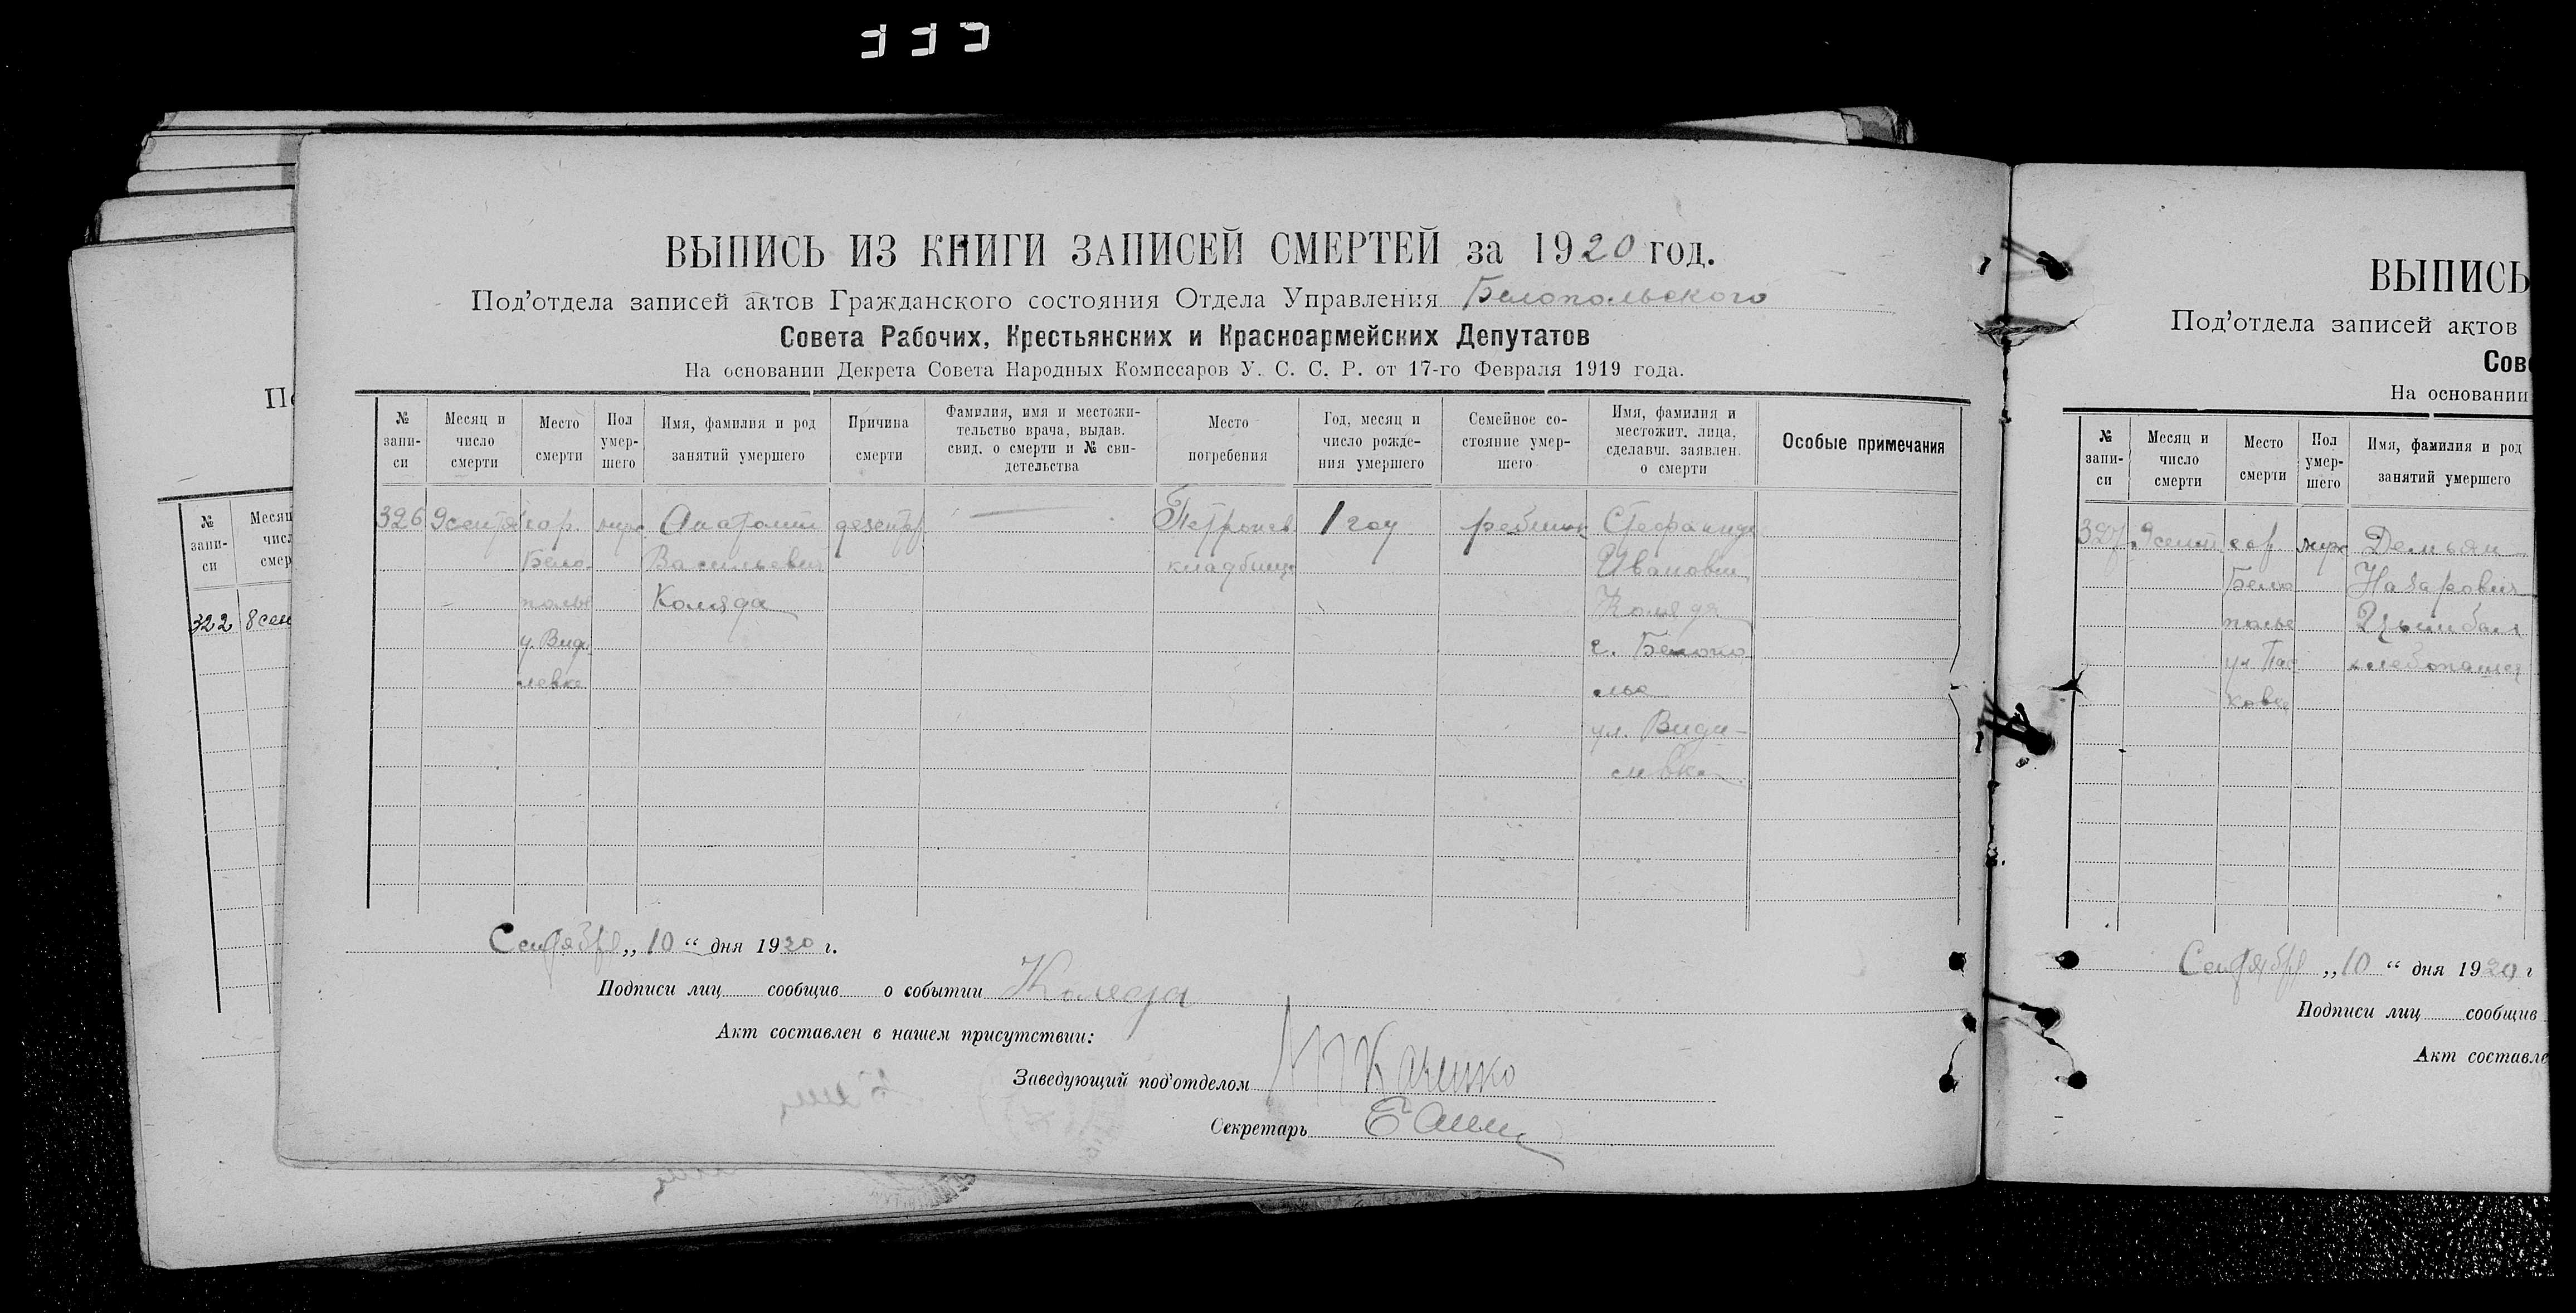 ВЫПИСЬ ИЗ КНИГИ ЗАПИСЕЙ СМЕРТЕЙ за 1920 год.
Под'отдела записей актов Гражданского состояния Отдела Управления Белопольского
Совета Рабочих, Крестьянских и Красноармейских Депутатов
На основании Декрета Совета Народных Комиссаров У. С. С. Р. от 17-го Февраля 1919 года.
№ запи-си
Месяц и число смерти
Место смерти
Пол умер-шего
Имя, фамилия и род занятий умершего
Причина смерти
Фамилия, имя и местожи-тельство врача, выдав. свид. о смерти и № сви-детельства
Место погребения
Год, месяц и число рожде-ния умершего
Семейное со-стояние умер-шего
Имя, фамилия и местожит. лица, сделавш. заявлен. о смерти
Особые примечания
326 9 сентя гор. муж Анатолий дезентер Петропав. 1 год ребенок Стефанида
Бело- Васильевич кладбище Ивановн
полье Коляда Коляда
у. Вид г. Белопо
левке лье
ул. Види-
левка
Сентября „10“ дня 1920 г.
Подписи лиц сообщив о событии Коляда
Акт составлен в нашем присутствии:
Заведующий под'отделом
Секретарь
По
№ запи-си
Месяц числ смер
322 8 сен
ВЫПИСЬ
Под'отдела записей актов
Сове
На основании
№ запи-си
Месяц и число смерти
Место смерти
Пол умер-шего
Имя, фамилия и род занятий умершего
327 9 сент гор муж Демьян
Бело Назарович
полье Цымбал
ул. Пас хлебопашец
ковка
Сентября „10“ дня 1920 г
Подписи лиц сообщив
Акт составле